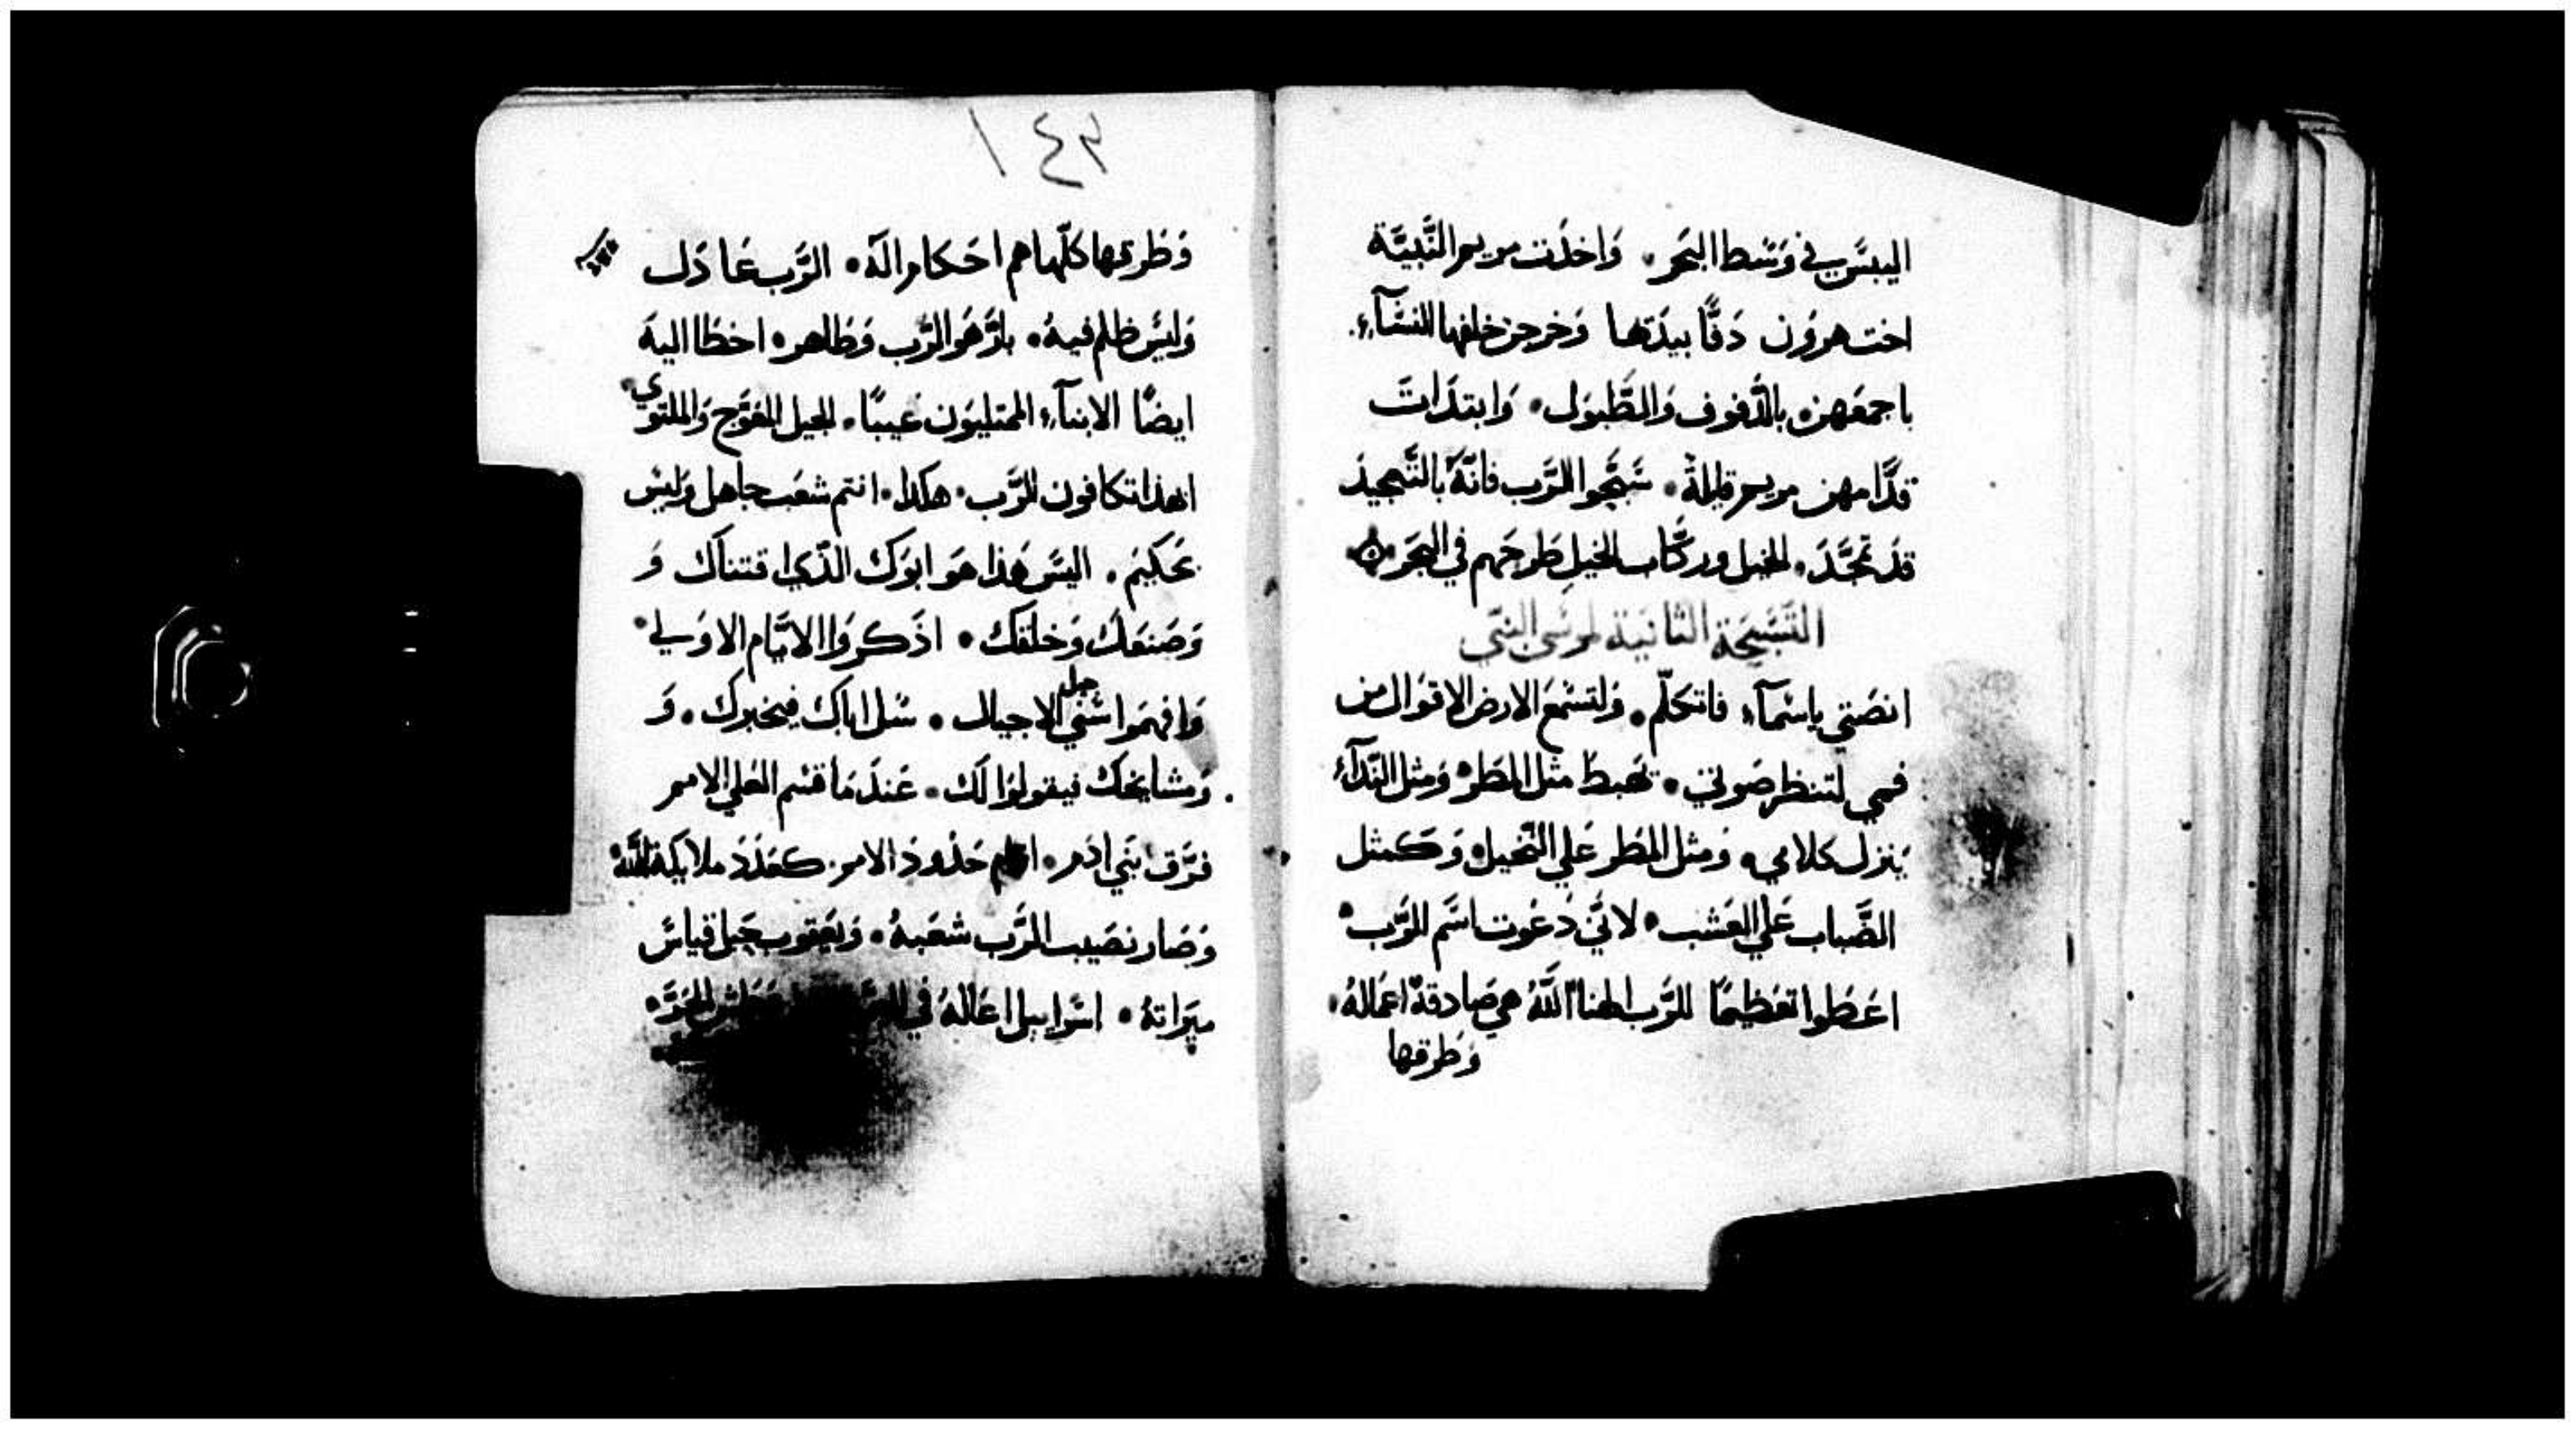 اليبس في وسط البحر • واخدت مريم النبية
اخت هرون دفا بيدتها وخرجن خلفها النساء
باجمعهن بالدفوف والطبول • وابتدات
قدامهن مريم قايلة • سبحوا للرب فانه بالتمجيد
قد تمجد • الخيل وركاب الخيل طرحهم في البحر
التسبحة الثانية لموسى النبي
انصتي ياسماء فاتكلم • ولتسمع الارض الاقوال من
فمي لتنظر صوتي • تهبط مثل المطر ومثل الندآء
ينزل كلامي • ومثل المطر علي النخيل وكمثل
الضباب علي العشب • لاني دعوت اسم الرب •
اعطوا تعظيما للرب الهنا الله هي صادقة اعماله •
وطرقها
١٤٢
وطرقها كلها هم احكام اله • الرب عادل
وليس ظلم فيه • بار هو الرب وطاهر • اخطا اليه
ايضا الابنآء الممتليون عيبا • الجيل المعوج والملتوي
ابهذا تكافون للرب • هكذا • انتم شعب جاهل وليس
بحكيم • اليس هذا هو ابوك الذي اقتناك و
وصنعك وخلقك • اذكروا الايام الاولي •
وافهموا سني جيل الاجيال • سل اباك فيخبرك • و
ومشايخك فيقولوا لك • عند ما قسم العلي الامم
فرق بني ادم • حدود الامم كعدد ملايكة الله
وصار نصيب الرب شعبه • ويعقوب حبل قياس
ميراته • اسراييل اعاله في